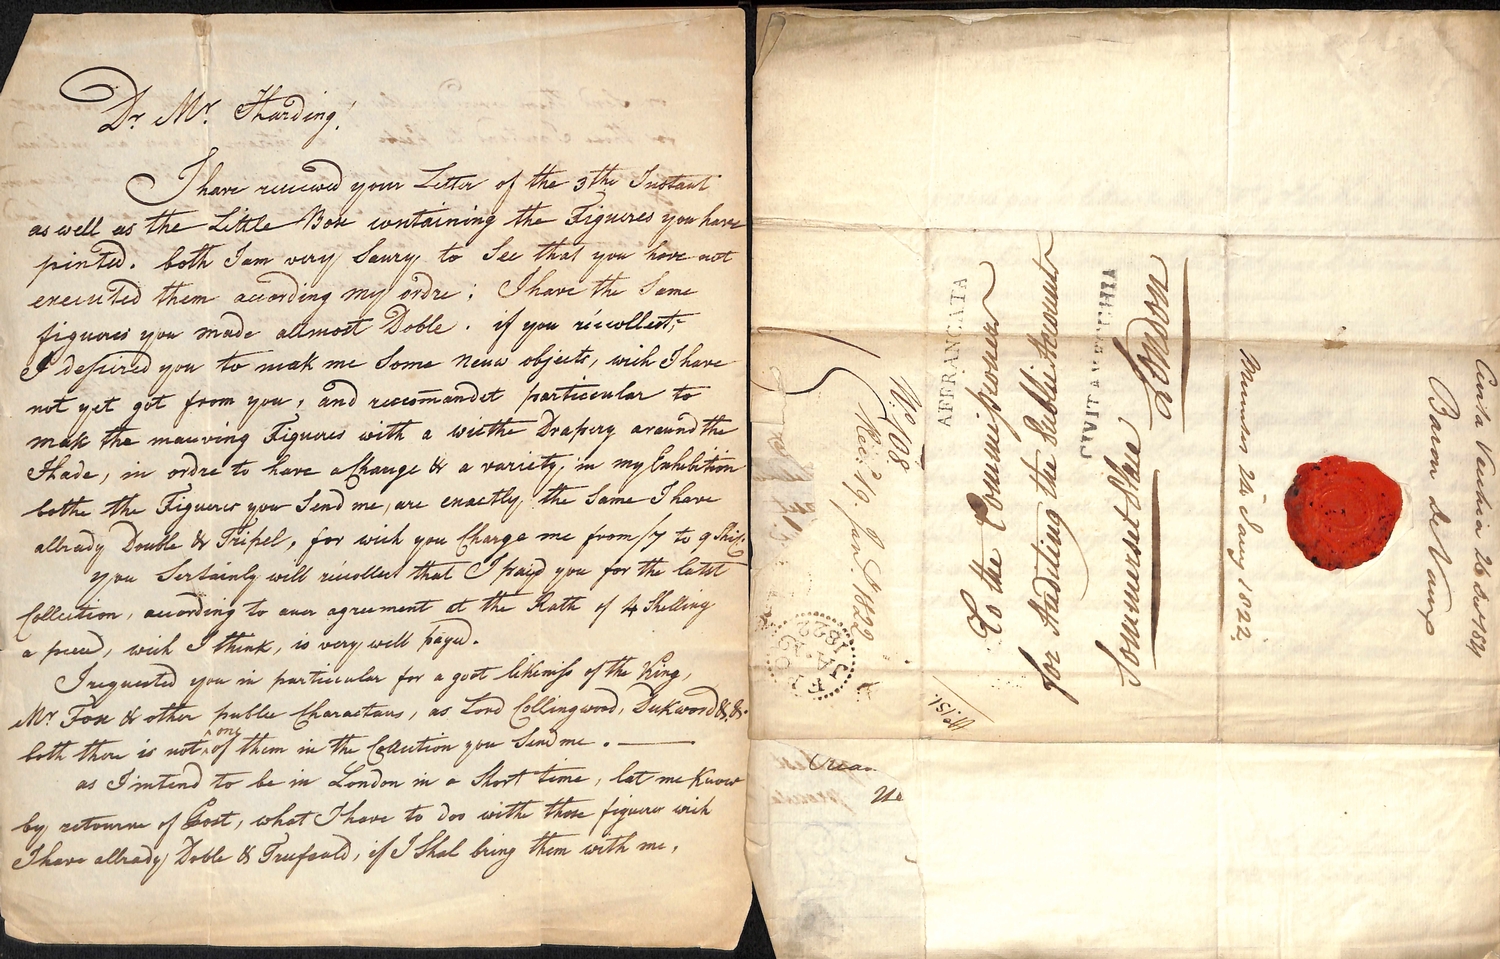 Dr. Mr. Harding!
I have received your Letter of the 3the Instant
as well as the Little Box containing the Figures you have
pinted. both I am very Saury to See that you have not
executed them according my ordre; I have the Same
figures you made allmost Doble. if you recollect,
I desired you to mak me Some neuw objects, wich I have
not yet got from you, and reccomandet particular to
mak the mauving Figures with a withe Drapery around the
Hade, in ordre to have a Change & a variety, in my Exhibition
bothe the Figures you Send me, are exactly the Same I have
allready Double & Tripel, for wich you Charge me from /7 to 9 Shil:
you Sertainly will recollect that I payd you for the latst
Collection, according to auer agreement at the Rath of 4 Shelling
a piece, wich I think, is very well payd.
I requested you in particular for a goot likeniss of the King,
Mr. Fox & other public Charactaurs, as Lord Collingwood, Duckword & &.
both there is not one of them in the Collection you Send me.
as I intend to be in London in a Short time, let me Know
by retourne of Post, what I have to doo withe those figures wich
I have allready Doble & Treefould, if I Shal bring them with me,
No. 108
Rec.d 19. Jan.y 1822
AFFRANCATA
To the Commissioners
for Auditing the Public Accounts
CIVITAVECCHIA
Sommerset Place
London
No 151.
1822
Baron de Vaux